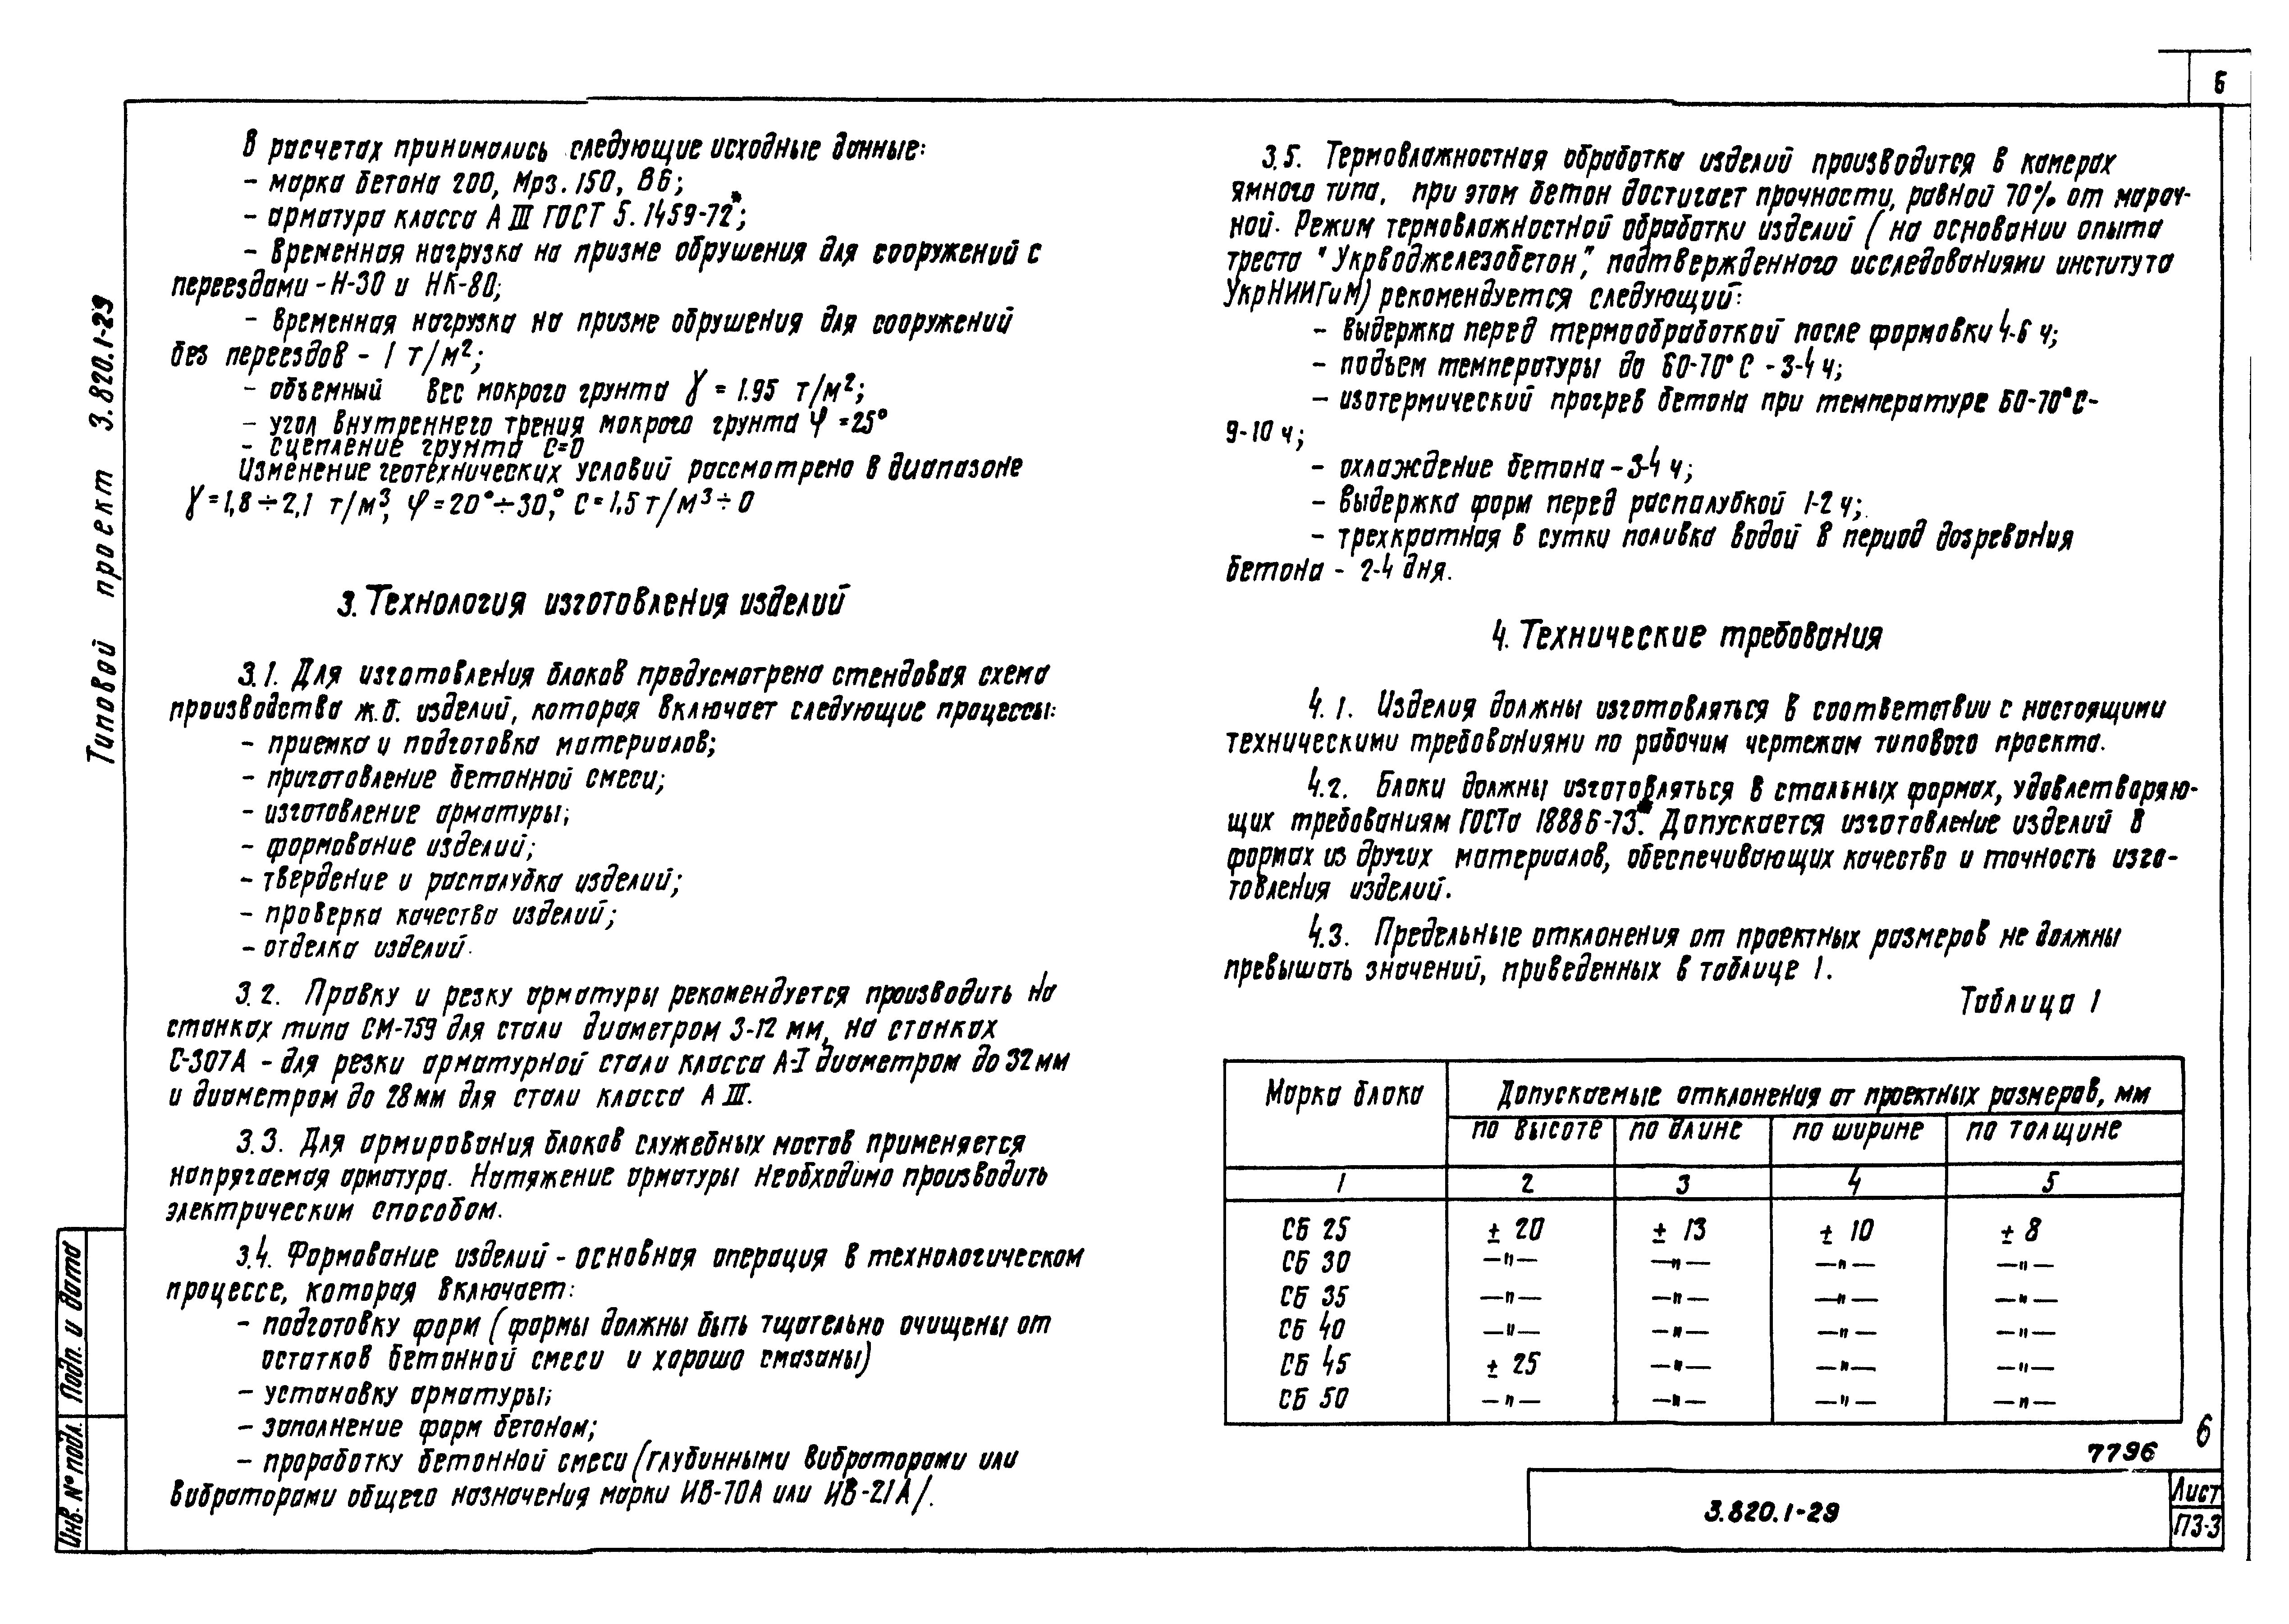 6
Типовой проект 3.820.1-29
В расчетах принимались следующие исходные данные:
- марка бетона 200, Мрз. 150, В6;
- арматура класса А III ГОСТ 5.1459-72*;
- временная нагрузка на призме обрушения для сооружений с
переездами - Н-30 и НК-80;
- временная нагрузка на призме обрушения для сооружений
без переездов - 1 т/м²;
- объемный вес мокрого грунта γ = 1.95 т/м²;
- угол внутреннего трения мокрого грунта φ = 25°
- сцепление грунта С=0
Изменение геотехнических условий рассмотрено в диапазоне
γ = 1,8 ÷ 2,1 т/м³, φ = 20° ÷ 30°, С = 1,5 т/м³ ÷ 0
3. Технология изготовления изделий
3.1. Для изготовления блоков предусмотрена стендовая схема
производства ж.б. изделий, которая включает следующие процессы:
- приемка и подготовка материалов;
- приготовление бетонной смеси;
- изготовление арматуры;
- формование изделий;
- твердение и распалубка изделий;
- проверка качества изделий;
- отделка изделий.
3.2. Правку и резку арматуры рекомендуется производить на
станках типа СМ-759 для стали диаметром 3-12 мм, на станках
С-307А - для резки арматурной стали класса А-I диаметром до 32 мм
и диаметром до 28 мм для стали класса А III.
3.3. Для армирования блоков служебных мостов применяется
напрягаемая арматура. Натяжение арматуры необходимо производить
электрическим способом.
3.4. Формование изделий - основная операция в технологическом
процессе, которая включает:
- подготовку форм (формы должны быть тщательно очищены от
остатков бетонной смеси и хорошо смазаны)
- установку арматуры;
- заполнение форм бетоном;
- проработку бетонной смеси (глубинными вибраторами или
вибраторами общего назначения марки ИВ-70А или ИВ-21А/.
3.5. Термовлажностная обработка изделий производится в камерах
ямного типа, при этом бетон достигает прочности, равной 70% от мароч-
ной. Режим термовлажностной обработки изделий (на основании опыта
треста "Укрводжелезобетон", подтвержденного исследованиями института
УкрНИИГиМ) рекомендуется следующий:
- выдержка перед термообработкой после формовки 4-6 ч;
- подъем температуры до 60-70°С - 3-4 ч;
- изотермический прогрев бетона при температуре 60-70°С-
9-10 ч;
- охлаждение бетона - 3-4 ч;
- выдержка форм перед распалубкой 1-2 ч;
- трехкратная в сутки поливка водой в период дозревания
бетона - 2-4 дня.
4. Технические требования
4.1. Изделия должны изготовляться в соответствии с настоящими
техническими требованиями по рабочим чертежам типового проекта.
4.2. Блоки должны изготовляться в стальных формах, удовлетворяю-
щих требованиям ГОСТа 18886-73*. Допускается изготовление изделий в
формах из других материалов, обеспечивающих качество и точность изго-
товления изделий.
4.3. Предельные отклонения от проектных размеров не должны
превышать значений, приведенных в таблице 1.
Таблица 1
Марка блока Допускаемые отклонения от проектных размеров, мм
по высоте по длине по ширине по толщине
1 2 3 4 5
СБ 25 ± 20 ± 13 ± 10 ± 8
СБ 30 —"— —"— —"— —"—
СБ 35 —"— —"— —"— —"—
СБ 40 —"— —"— —"— —"—
СБ 45 ± 25 —"— —"— —"—
СБ 50 —"— —"— —"— —"—
7796
6
3.820.1-29
Лист
ПЗ-3
Инв. № подл. Подп. и дата